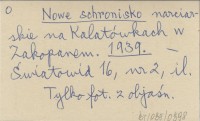 O
Nowe schronisko narciar-
skie na Kalatówkach w
Zakopanem. 1939. —
Światowid 16, nr 2, il.
Tylko fot. z objaśn.